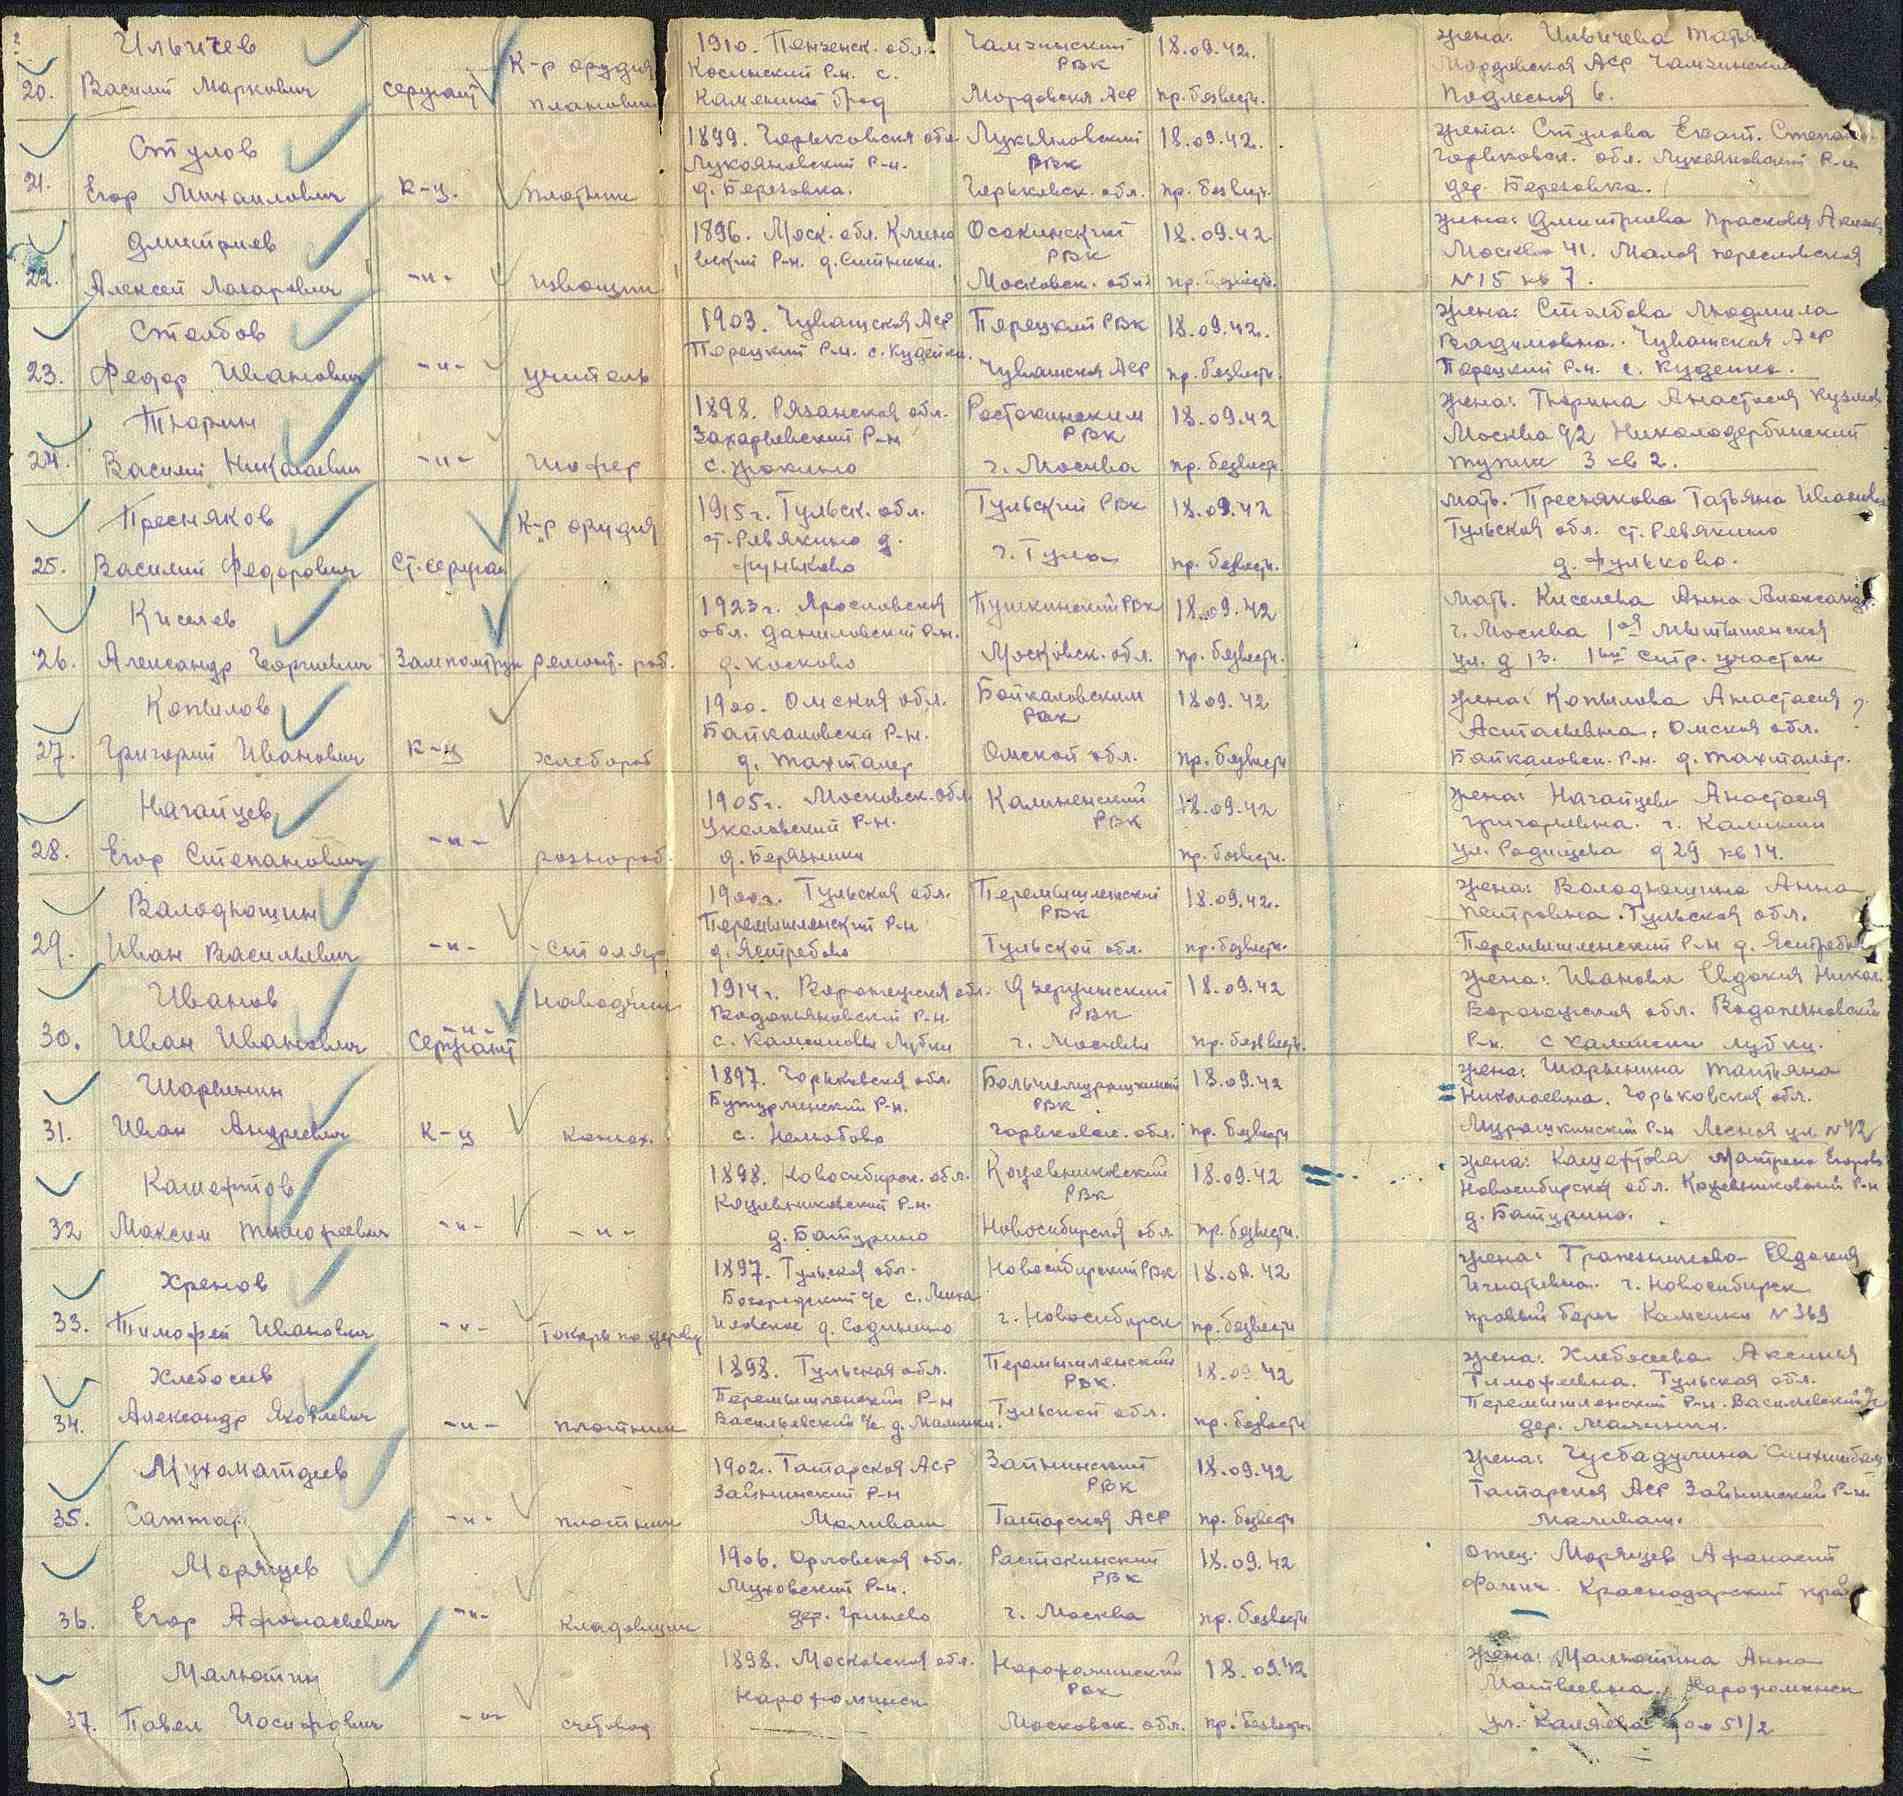 20. Ильичев
Василий Маркович
сержант
К-р орудия
плановик
1910. Пензенск. обл.
Р-н. с.
Каменный брод
Чамзинский
РВК
Мордовская АСР
18.09.42.
пр. безвест.
жена: Ильичева
Мордовская АСР Чамзинский
Подлесная 6.
21. Стулов
Егор Михаилович
к-ц.
плотник
1899. Горьковская обл.
Лукояновский Р-н.
д. Березовка.
Лукьяновский
РВК
Горьковск. обл.
18.09.42.
пр. безвест.
жена: Стулова Екат.
Горьковск. обл. Лукояновский Р-н
дер. Березовка.
22. Дмитриев
Алексей Лазарович
-"-
извощик
1896. Моск. обл. Клино
вский Р-н. д. Ситники.
Осокинский
РВК
Московск. обл.
18.09.42
пр. безвест.
жена: Дмитриева Прасковья
Москва 41. Малая переславская
№15 кв 7.
23. Столбов
Федор Иванович
-"-
учитель
1903. Чувашская АСР
Порецкий Р-н. с. Кудейка.
Порецкий РВК
Чувашская АСР
18.09.42.
пр. безвест.
жена: Столбова Людмила
Вадимовна. Чувашская АСР
Порецкий Р-н. с. Кудейка.
24. Тюрин
Василий Николаевич
-"-
шофер
1898. Рязанская обл.
Захарьевский Р-н
с.
Ростокинским
РВК
г. Москва
18.09.42
пр. безвест.
жена: Тюрина Анастасия
Москва 92
тупик 3 кв 2.
25. Пресняков
Василий Федорович
Ст. сержан
К-р орудия
1915г. Тульск. обл.
ст. Ревякино д.
Фуньково
Тульский РВК
г. Тула
18.09.42
пр. безвест.
мать. Преснякова Татьяна
Тульская обл. ст. Ревякино
д. Фульково.
26. Киселев
Александр Георгиевич
Зампомтрук
ремонт. раб.
1923г. Ярославская
обл. Даниловский Р-н.
д. Косково
Пушкинский РВК
Московск. обл.
18.09.42
пр. безвест.
мать. Киселева Анна
г. Москва 1ая Мытищенская
ул. д 13. 1ый стр. участок
27. Копылов
Григорий Иванович
к-ц
хлебороб
1900. Омская обл.
Байкаловский Р-н.
д. Тахтаиер
Байкаловским
РВК
Омской обл.
18.09.42
пр. безвести
жена: Копылова Анастасия
Астафьевна. Омская обл.
Байкаловск. Р-н. д. Тахтаиер.
28. Нагайцев
Егор Степанович
-"-
разнораб.
1905г. Московск. обл.
Р-н.
д. Березники
Калиненский
РВК
18.09.42
пр. безвест.
жена: Нагайцева Анастасия
Григорьевна. г. Калинин
ул. Радищева д 29 кв 14.
29. Володюшин
Иван Васильевич
-"-
столяр
1900г. Тульская обл.
Перемышленский Р-н
д. Ястребово
Перемышленский
РВК
Тульской обл.
18.09.42.
пр. безвест.
жена: Володюшина Анна
Петровна. Тульская обл.
Перемышленский Р-н д.
30. Иванов
Иван Иванович
-"-
Сержант
наводчик
1914г. Воронежская обл.
Водопьяновский Р-н.
с.
Дзержинский
РВК
г. Москвы
18.09.42
пр. безвест.
жена: Иванова Евдокия Никол.
Воронежская обл. Водопяновский
Р-н.
31. Шарынин
Иван Андреевич
к-ц
конюх.
1897. Горьковская обл.
Бутурлинский Р-н.
с.
РВК
Горьковск. обл.
18.09.42
пр. безвести
жена: Шарынина Татьяна
Николаевна. Горьковская обл.
Мурашкинский Р-н Лесная ул №42
32 Кашефтов
Максим Тимофеевич
-"-
-"-
1898. Новосибирск. обл.
Кожевниковский Р-н.
д. Батурино
Кожевниковский
РВК
Новосибирской обл
18.09.42
пр. безвест.
жена: Кашефтова Матрена
Новосибирская обл. Кожевниковский Р-н
д. Батурино.
33. Хренов
Тимофей Иванович
-"-
Токарь по дереву
1897. Тульская обл.
Богородский с/с
д.
Новосибирский РВК
г. Новосибирск
18.09.42
пр. безвести
жена: Евдокия
Игнатьевна. г. Новосибирск
правый берег Каменки №369
34. Хлебосев
Александр Яковлевич
-"-
плотник
1898. Тульская обл.
Перемышленский Р-н
Васильевский с/с д.
Перемышленский
РВК.
Тульской обл.
18.09.42
пр. безвести
жена: Хлебосева Аксинья
Тимофеевна. Тульская обл.
Перемышленский Р-н. Васильевский
дер.
35. Мухаматдиев
Саттар
-"-
плотник
1902г. Татарская АСР
Зайнинский Р-н
Маливаш
Зайнинский
РВК
Татарская АСР
18.09.42
пр. безвест
жена:
Татарская АСР Зайнинский Р-н
Маливаш.
36. Морящев
Егор Афонасьевич
-"-
кладовщик
1906. Орловская обл.
Р-н.
дер. Гринево
Растокинский
РВК
г. Москва
18.09.42
пр. безвести
отец: Морящев Афанасий
Краснодарский край
37. Малютин
Павел Иосифович
-"-
счетовод
1898. Московская обл.
Нарофоминск
Нарофоминский
РВК
Московск. обл.
18.09.42
пр. безвест.
жена: Малютина Анна
Матвеевна. Нарофоминск
ул. Каляева 51/2